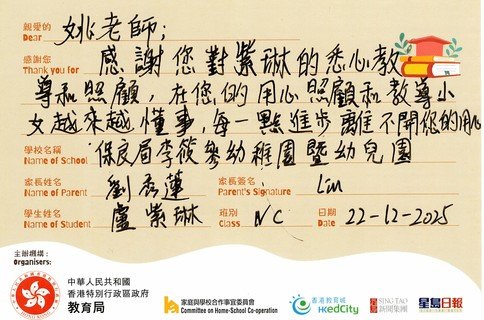 親愛的
Dear 姚老師;
感謝您
Thank you for 感謝您對紫琳的悉心教
導和照顧，在您的用心照顧和教導小
女越來越懂事，每一點進步離不開您的用心
學校名稱
Name of School 保良局李筱參幼稚園暨幼兒園
家長姓名
Name of Parent 劉秀蓮
家長簽名
Parent's Signature Lin
學生姓名
Name of Student 盧紫琳
班別
Class NC
日期
Date 22-12-2025
主辦機構：
Organisers:
中華人民共和國
香港特別行政區政府
教育局
家庭與學校合作事宜委員會
Committee on Home-School Co-operation
香港教育城
HKedCity
SING TAO
星島新聞集團
星島日報